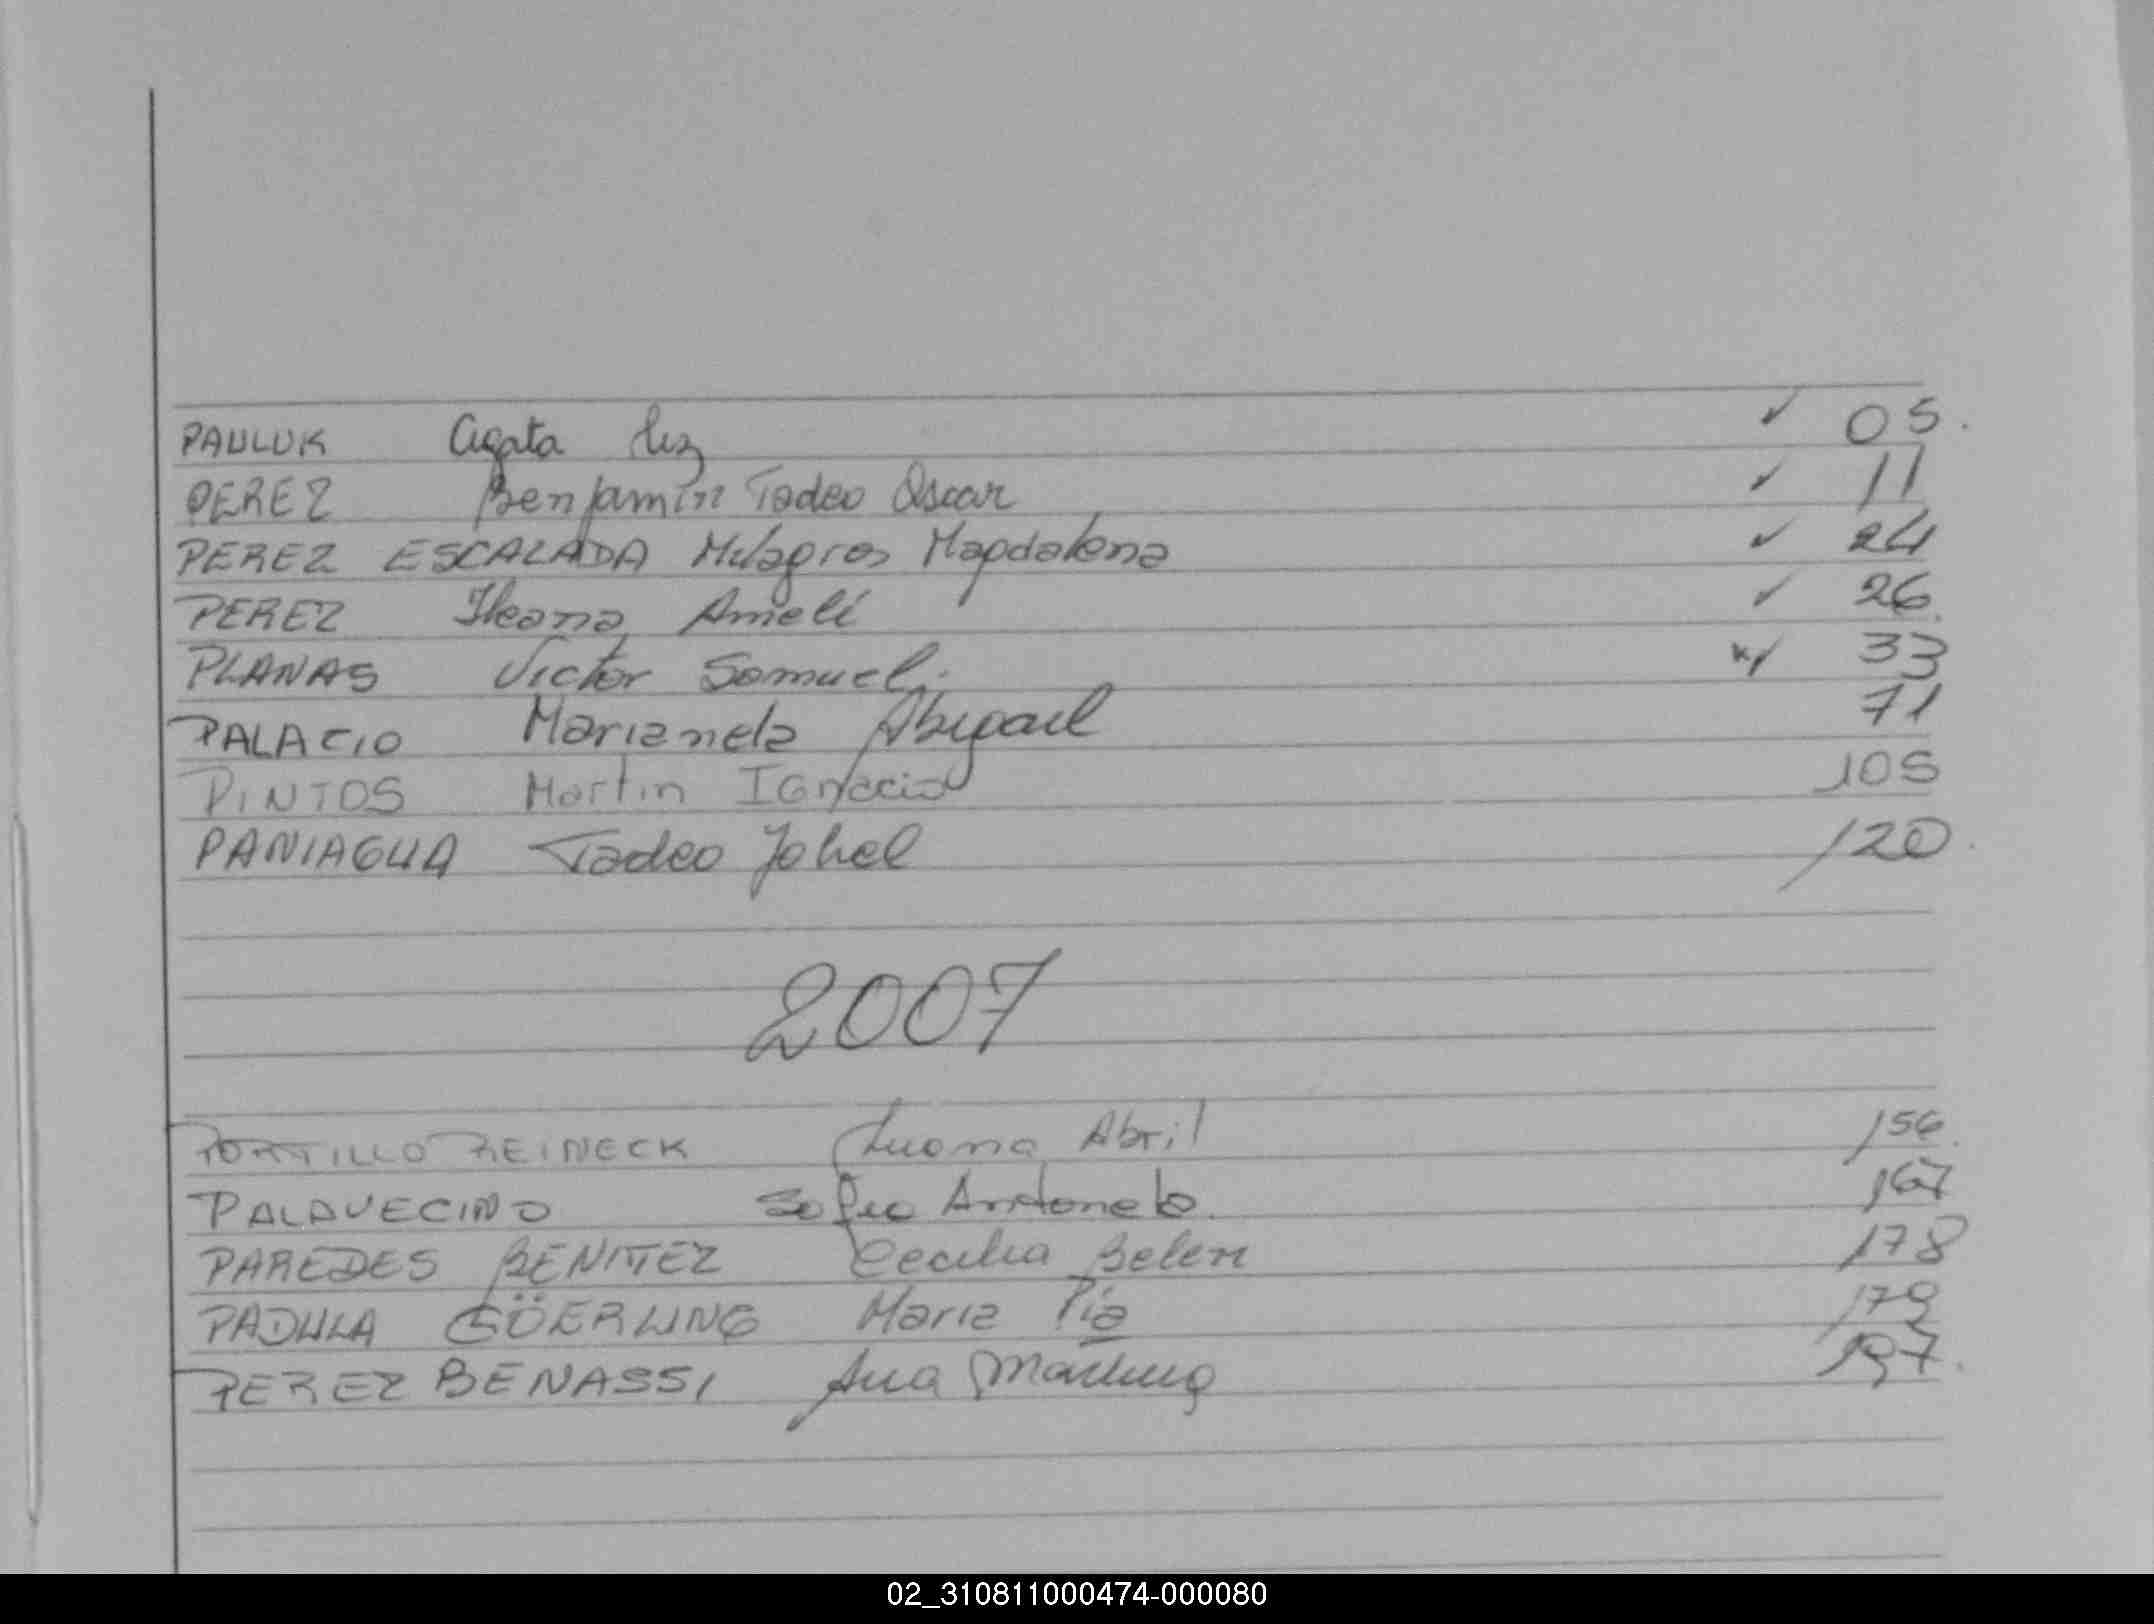 PAULUK Agata Luz ✓ 05.
PEREZ Benjamín Tadeo Oscar ✓ 11
PEREZ ESCALADA Milagros Magdalena ✓ 24
PEREZ Ileana Amelí ✓ 26.
PLANAS Victor Samuel. 33
PALACIO Marianela Abigail 71
PINTOS Martin IGnacio 105
PANIAGUA Tadeo Johel 120.
2007
PORTILLO REINECK Luana Abril 156.
PALAVECINO Sofia Antonela. 167
PAREDES BENITEZ Cecilia Belen 178
PADULA GÖERLING Maria Pía 179
PEREZ BENASSI Ana Martina 197.
02_310811000474-000080